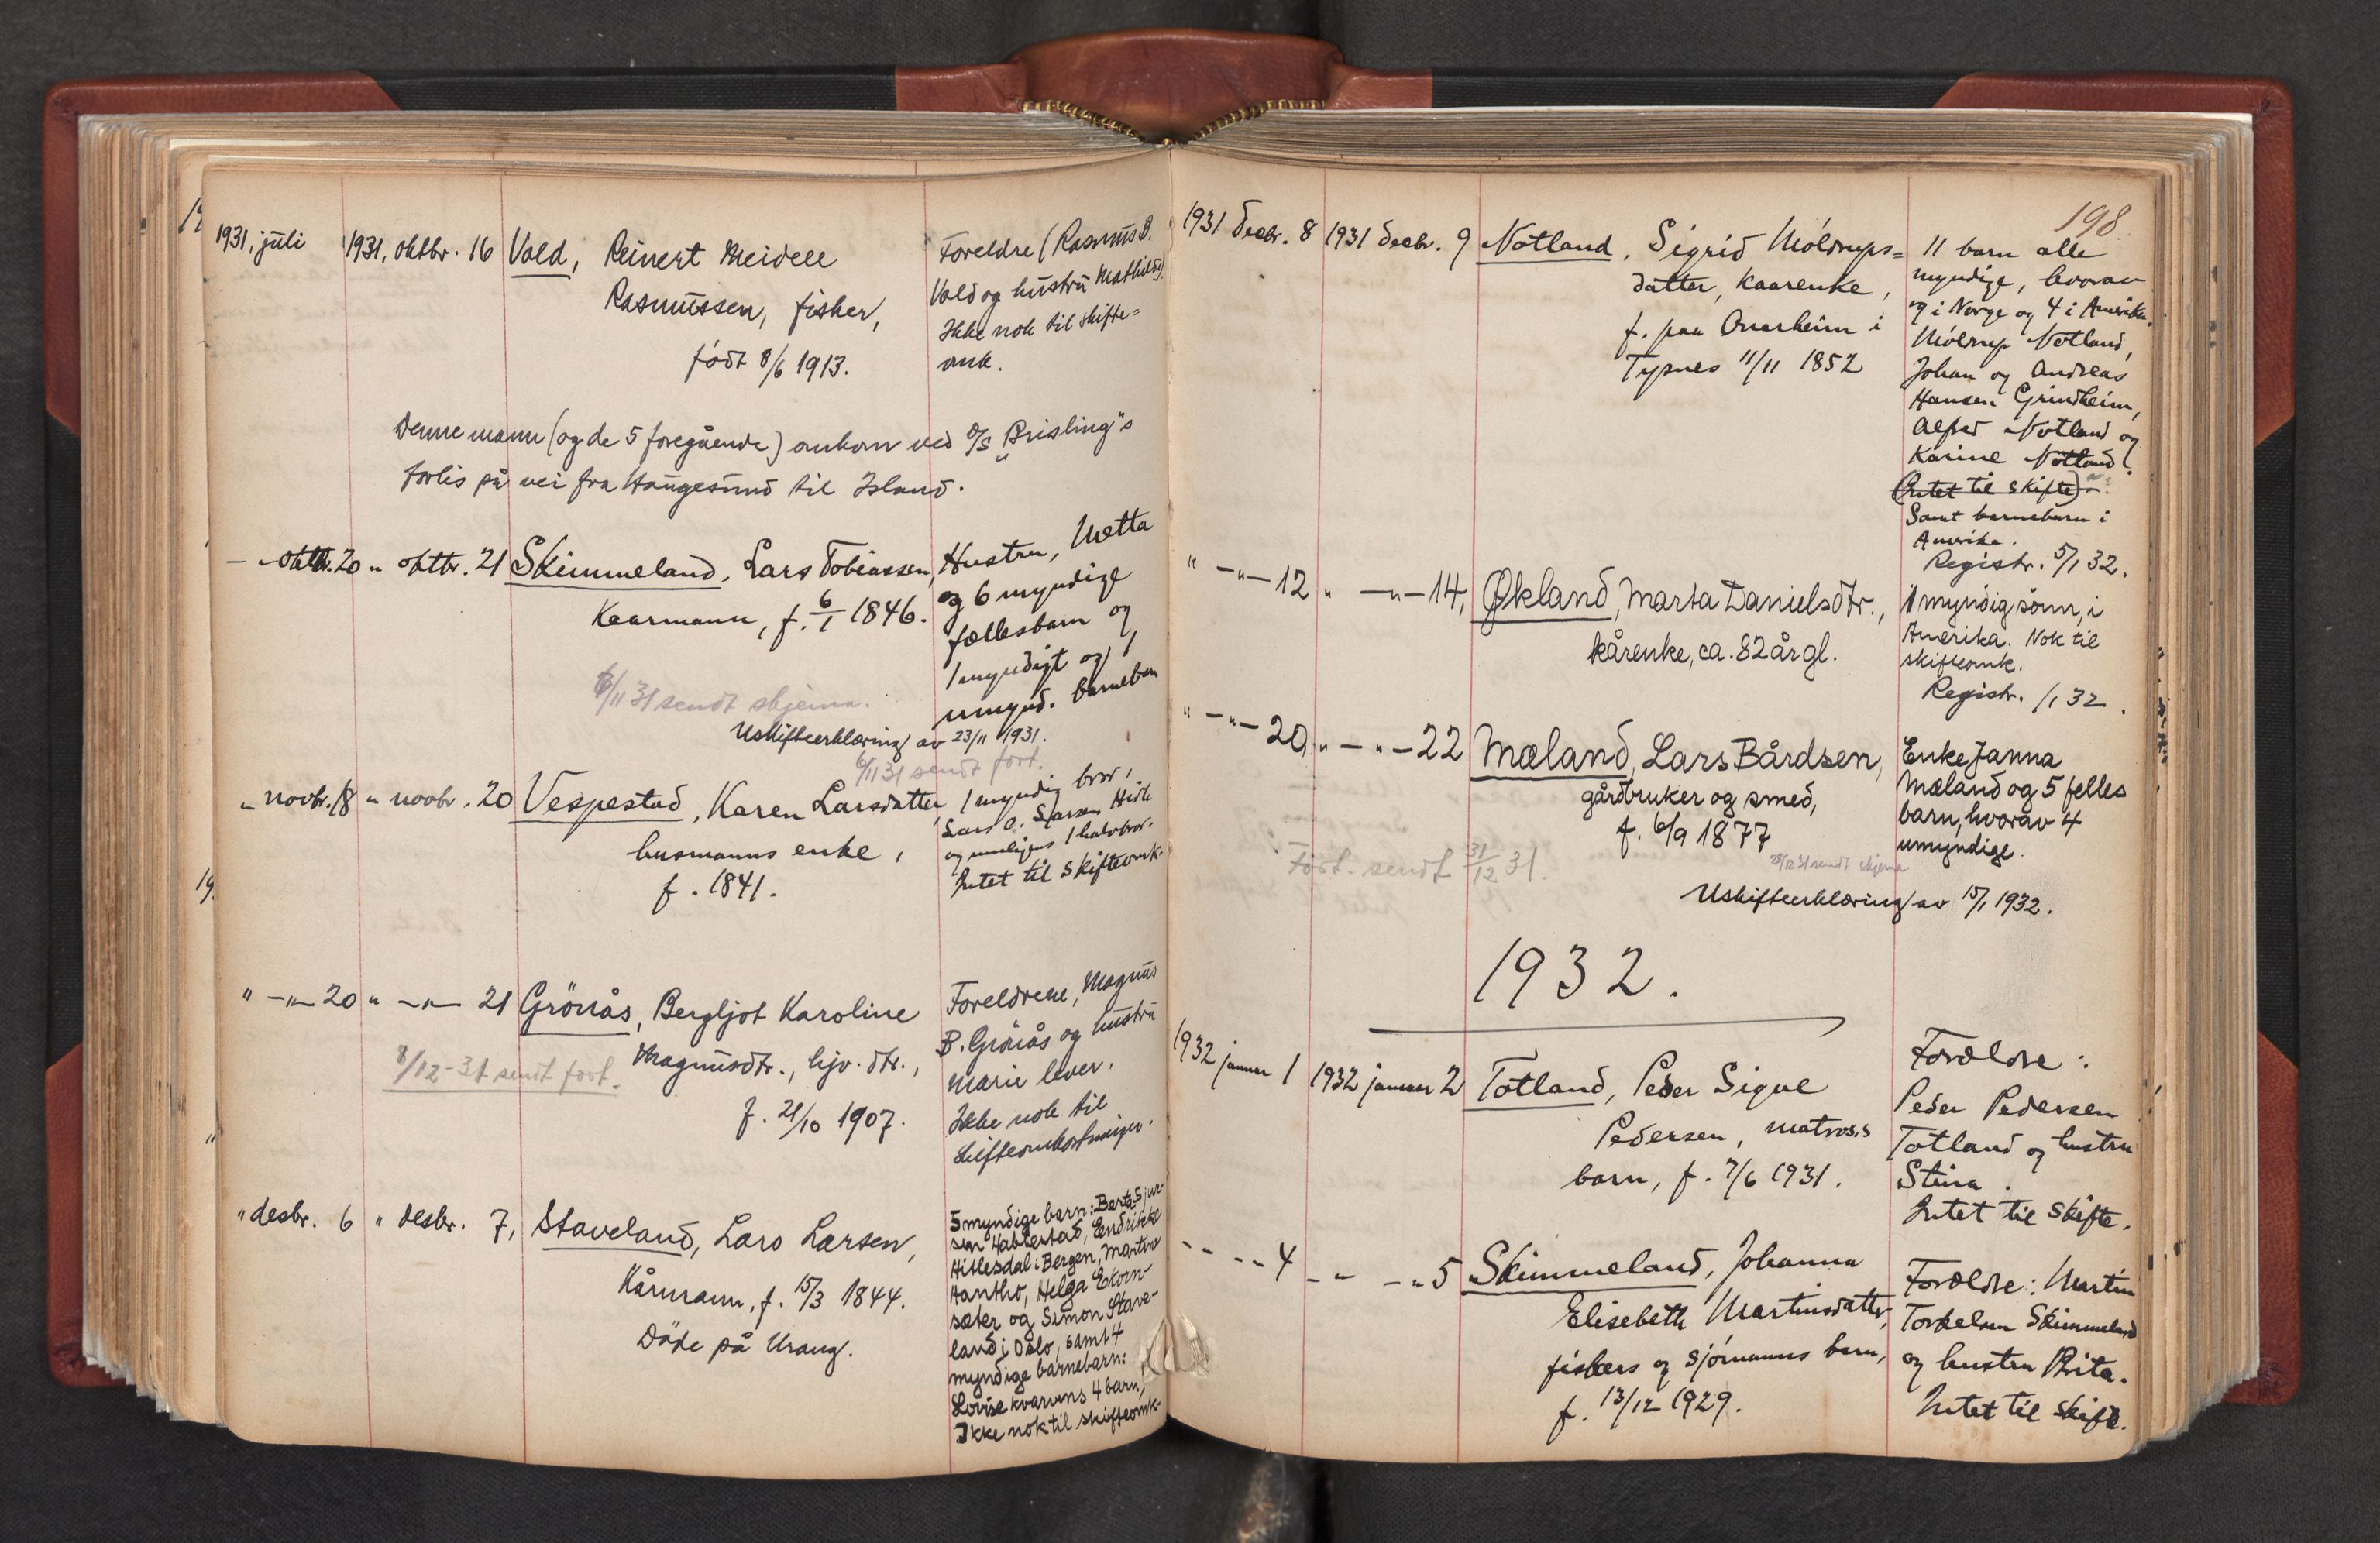 1931, juli 1931, oktbr. 16 Vold, Reinert Meidell
Rasmussen, fisker,
født 8/6 1913.
Foreldre (Rasmus B.
Vold og hustru Mathilde).
Ikke nok til skifte=
omk.
Denne mann (og de 5 foregående) omkom ved D/S „Brisling"s
forlis på vei fra Haugesund til Island.
— " oktbr. 20 " oktbr. 21 Skimmeland, Lars Tobiassen,
Kaarmann, f. 6/1 1846.
Hustru, Metta
og 6 myndige
fællesbarn og
1 myndigt og 1
umynd. barnebarn
6/11 31 sendt skjema.
Uskifteerklæring av 23/11 1931.
6/11 31 sendt fort.
" novbr. 18 " novbr. 20 Vespestad, Karen Larsdatter,
husmanns enke,
f. 1841.
1 myndig bror,
Lars O. Larsen
og muligens 1 halvbror.
Intet til skifteomk.
" —"— 20 " —"— 21 Grönås, Bergljot Karoline
Magnusdtr., hjv. dtr.,
f. 21/10 1907.
8/12-31 sendt fort.
Foreldrene, Magnus
B. Grönås og hustru
Marie lever.
Ikke nok til
skifteomkostninger.
" desbr. 6 " desbr. 7, Staveland, Lars Larsen,
Kårmann, f. 15/3 1844.
Döde på Urang.
5 myndige barn: Berta Sjur-
sen Hablestad, Eendrikke
Hitlesdal i Bergen, Martine
Hantho, Helga Ekorn-
sæter og Simon Stave-
land i Oslo, samt 4
myndige barnebarn:
Lovise Kvarvens 4 barn,
Ikke nok til skifteomk.
198
1931 Decbr. 8 1931 Decbr. 9 Notland, Sigrid Móldrups=
datter, kaarenke,
f. paa Onarheim i
Tysnes 11/11 1852
11 barn alle
myndige, hvorav
7 i Norge og 4 i Amerika.
Móldrup Notland,
Johan og Andreas
Hansen Grindheim,
Alfred Notland og
Karine Notland.
(Intet til skifte)
Samt barnebarn i
Amerika.
Registr. 5/1 32.
" —"— 12 " —"— 14, Økland, Marta Danielsdtr.,
kårenke, ca. 82 år gl.
1 myndig sönn, i
Amerika. Nok til
skifteomk.
Registr. /1 32.
" —"— 20 " —"— 22 Mæland, Lars Bårdsen,
gårdbruker og smed,
f. 6/9 1877
Enke Janna
Mæland og 5 felles
barn, hvorav 4
umyndige.
Fort. sendt 31/12 31.
sendt skjema
Uskifteerklæring av 15/1 1932.
1932.
1932 januar 1 1932 januar 2 Totland, Peder Sigve
Pedersen, matros's
barn, f. 7/6 1931.
Forældre:
Peder Pedersen
Totland og hustru
Stina.
Intet til skifte.
" — " 4 — " — " 5 Skimmeland, Johanna
Elisebeth Martinsdatter,
fiskers og sjómanns barn,
f. 13/12 1929.
Forældre: Martin
Torkelsen Skimmeland
og hustru Brita.
Intet til skifte.